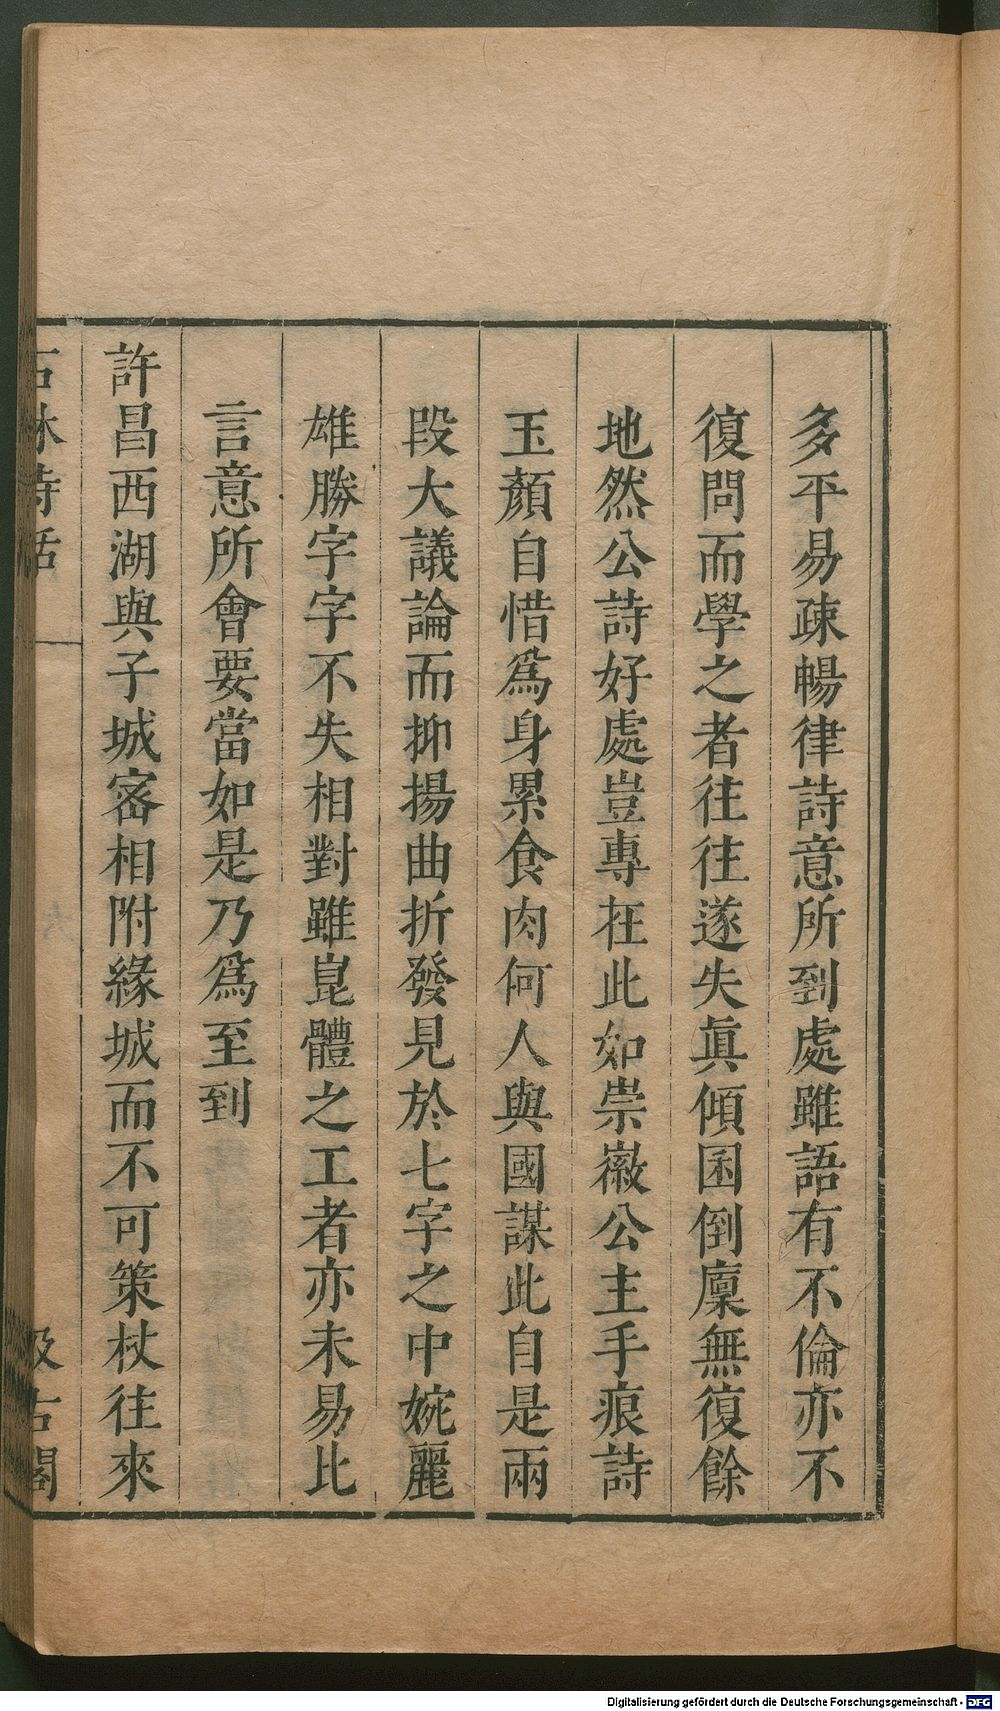 多平易疎暢律詩意所到處雖語有不倫亦不
復問而學之者往往遂失眞傾囷倒廩無復餘
地然公詩好處豈專在此如崇徽公主手痕詩
玉顏自惜爲身累食肉何人與國謀此自是兩
段大議論而抑揚曲折發見於七字之中婉麗
雄勝字字不失相對雖崑體之工者亦未易比
言意所會要當如是乃爲至到
許昌西湖與子城密相附緣城而不可策杖往來
石林詩話
汲古閣
Digitalisierung gefördert durch die Deutsche Forschungsgemeinschaft - DFG